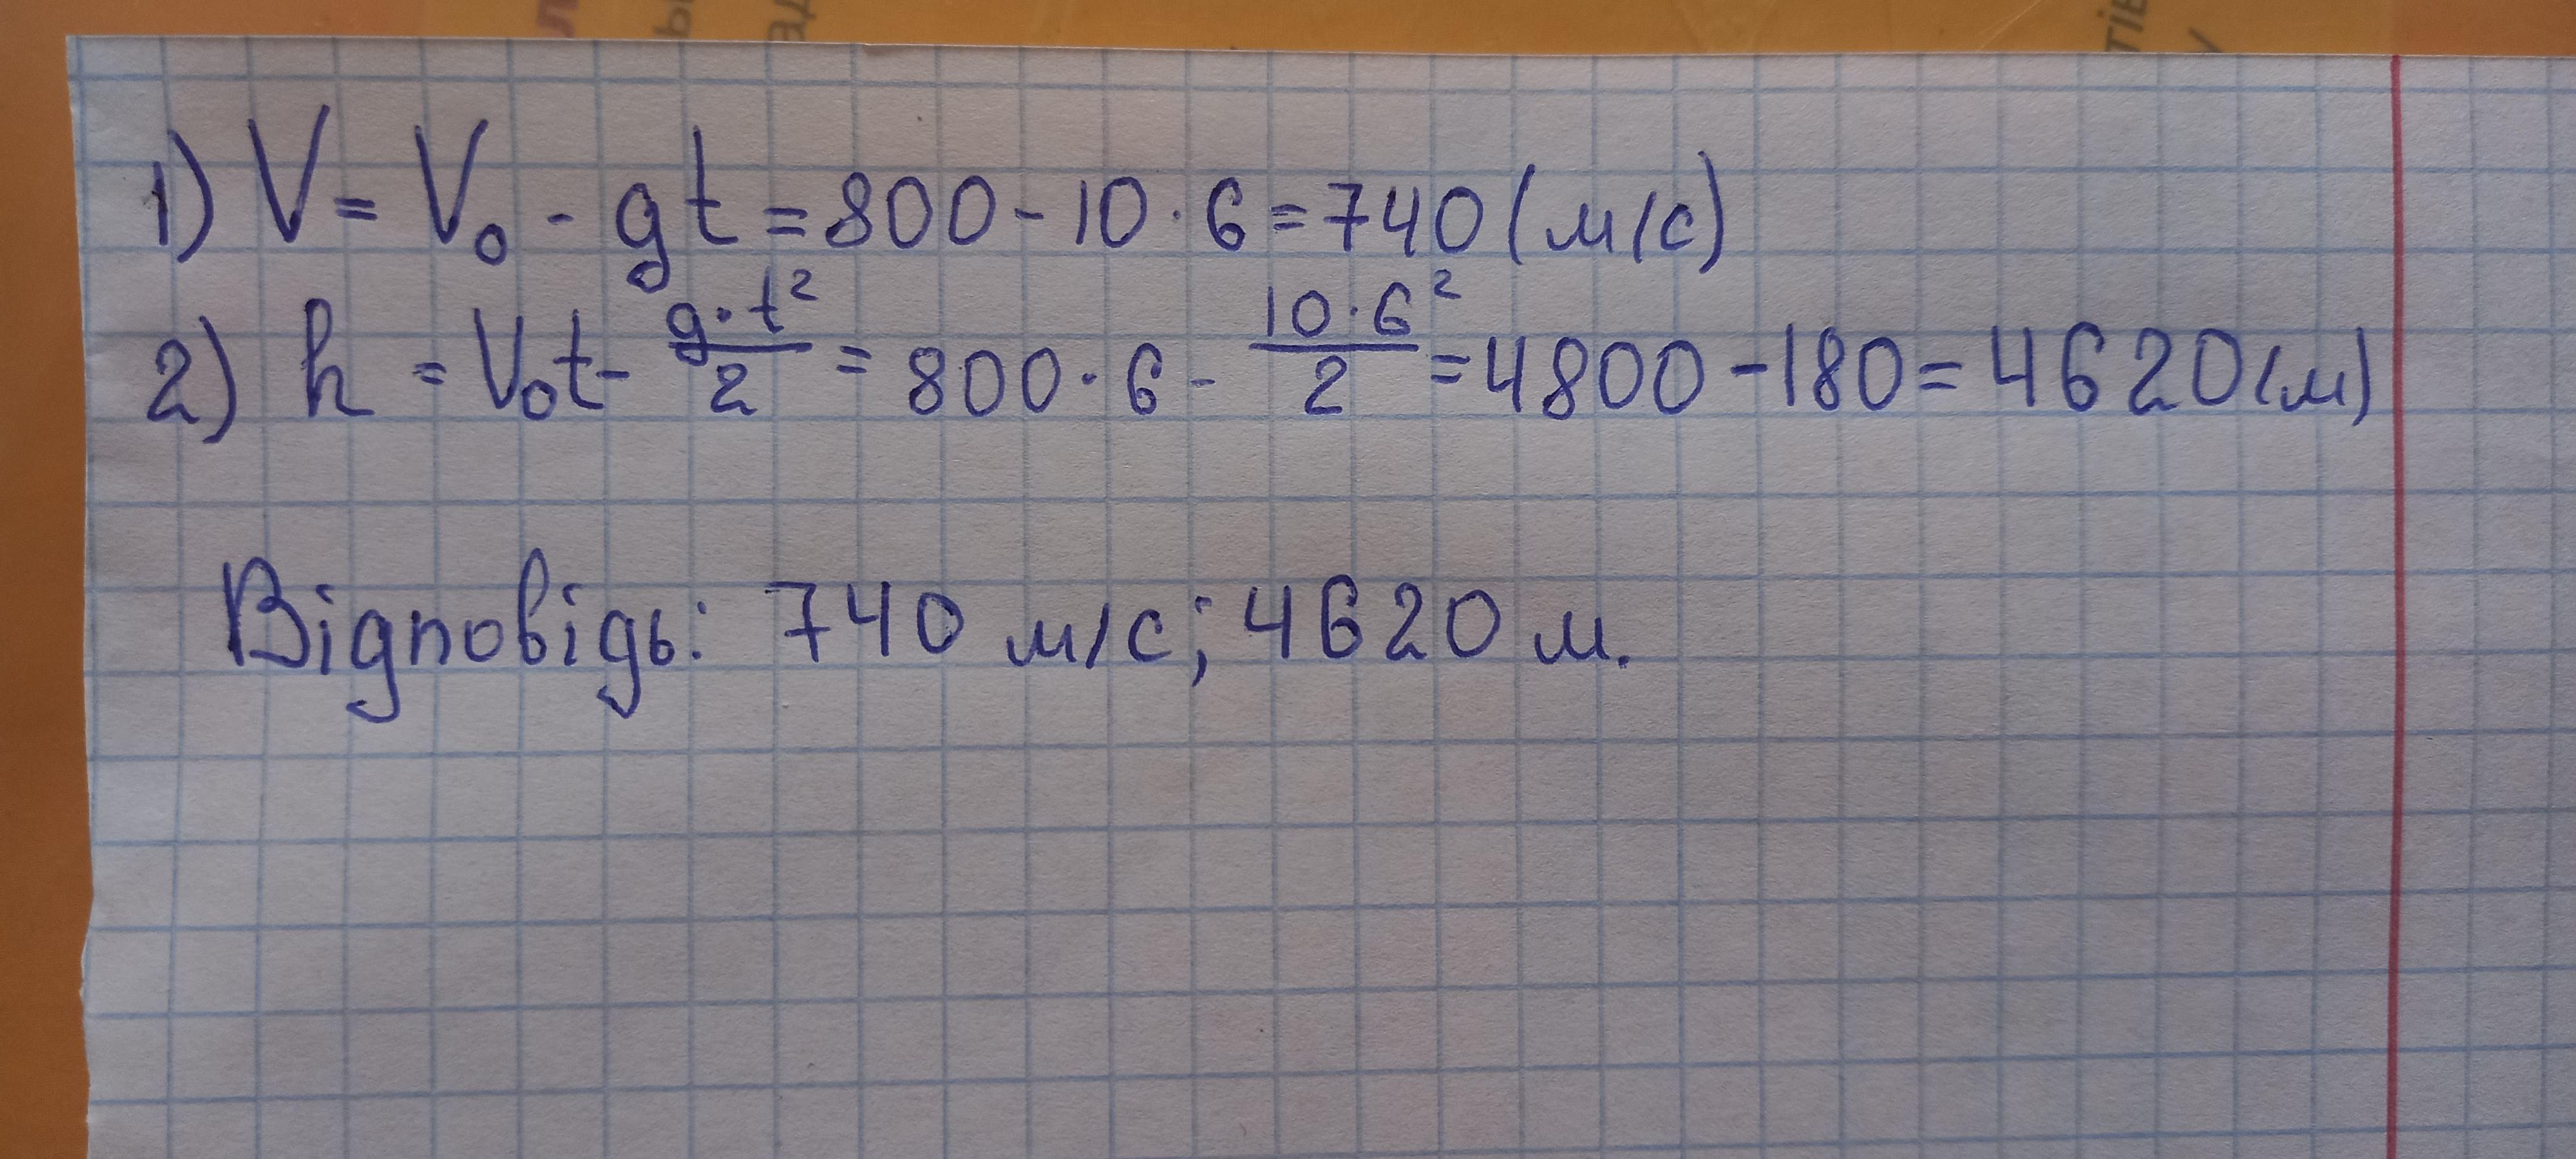 1) V = V₀ - gt = 800 - 10 · 6 = 740 (м/с)
2) h = V₀t - g·t²/2 = 800 · 6 - 10·6²/2 = 4800 - 180 = 4620 (м)
Відповідь: 740 м/с; 4620 м.